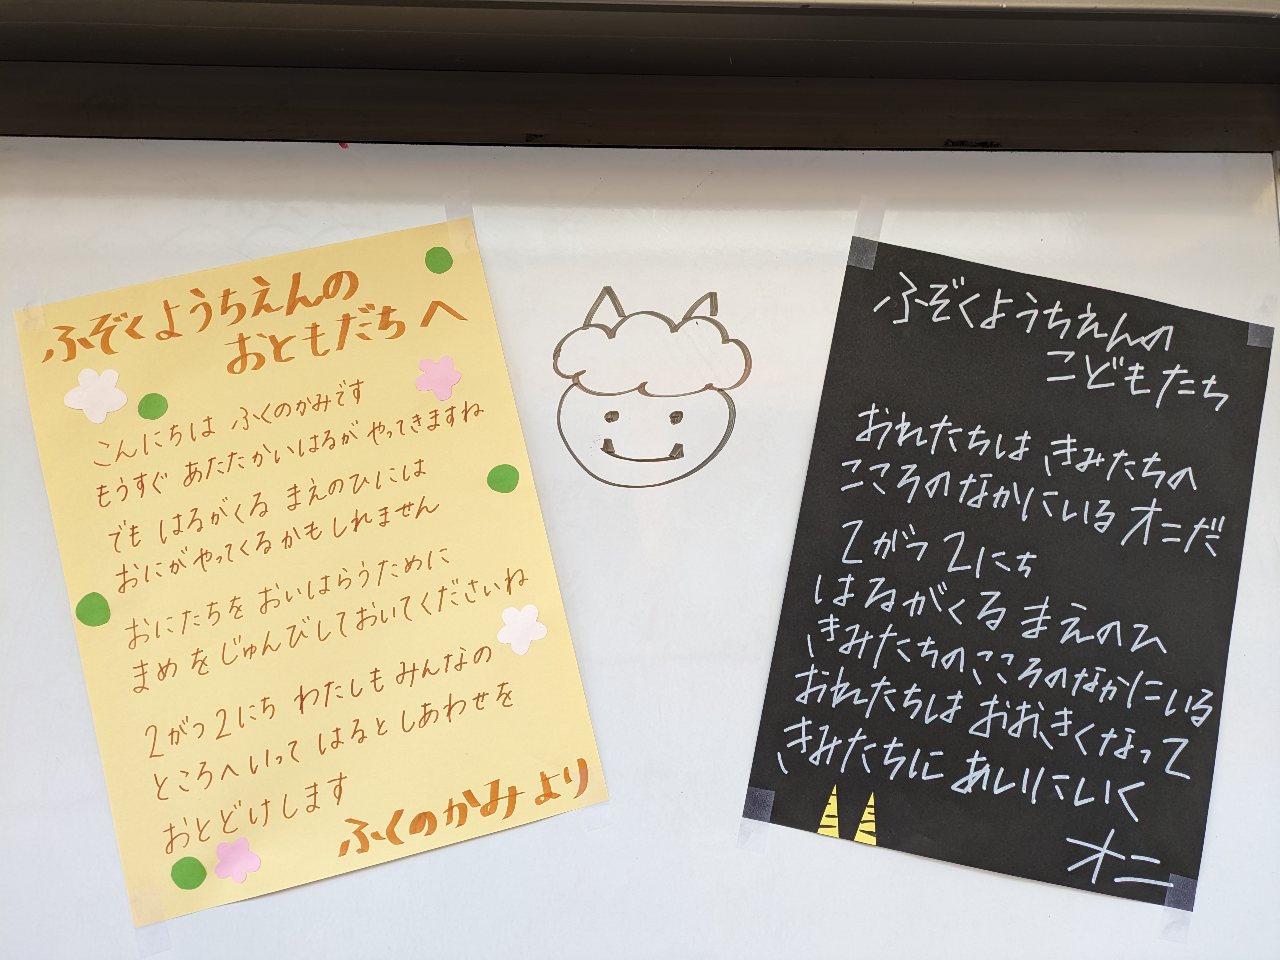 ふぞくようちえんの
おともだちへ
こんにちは ふくのかみです
もうすぐ あたたかいはるが やってきますね
でも はるがくる まえのひには
おにがやってくるかもしれません
おにたちを おいはらうために
まめをじゅんびしておいてくださいね
2がつ2にち わたしもみんなの
ところへいって はるとしあわせを
おとどけします
ふくのかみより
ふぞくようちえんの
こどもたち
おれたちは きみたちの
こころのなかにいる オニだ
2がつ2にち
はるがくる まえのひ
きみたちのこころのなかにいる
おれたちは おおきくなって
きみたちに あいにいく
オニ